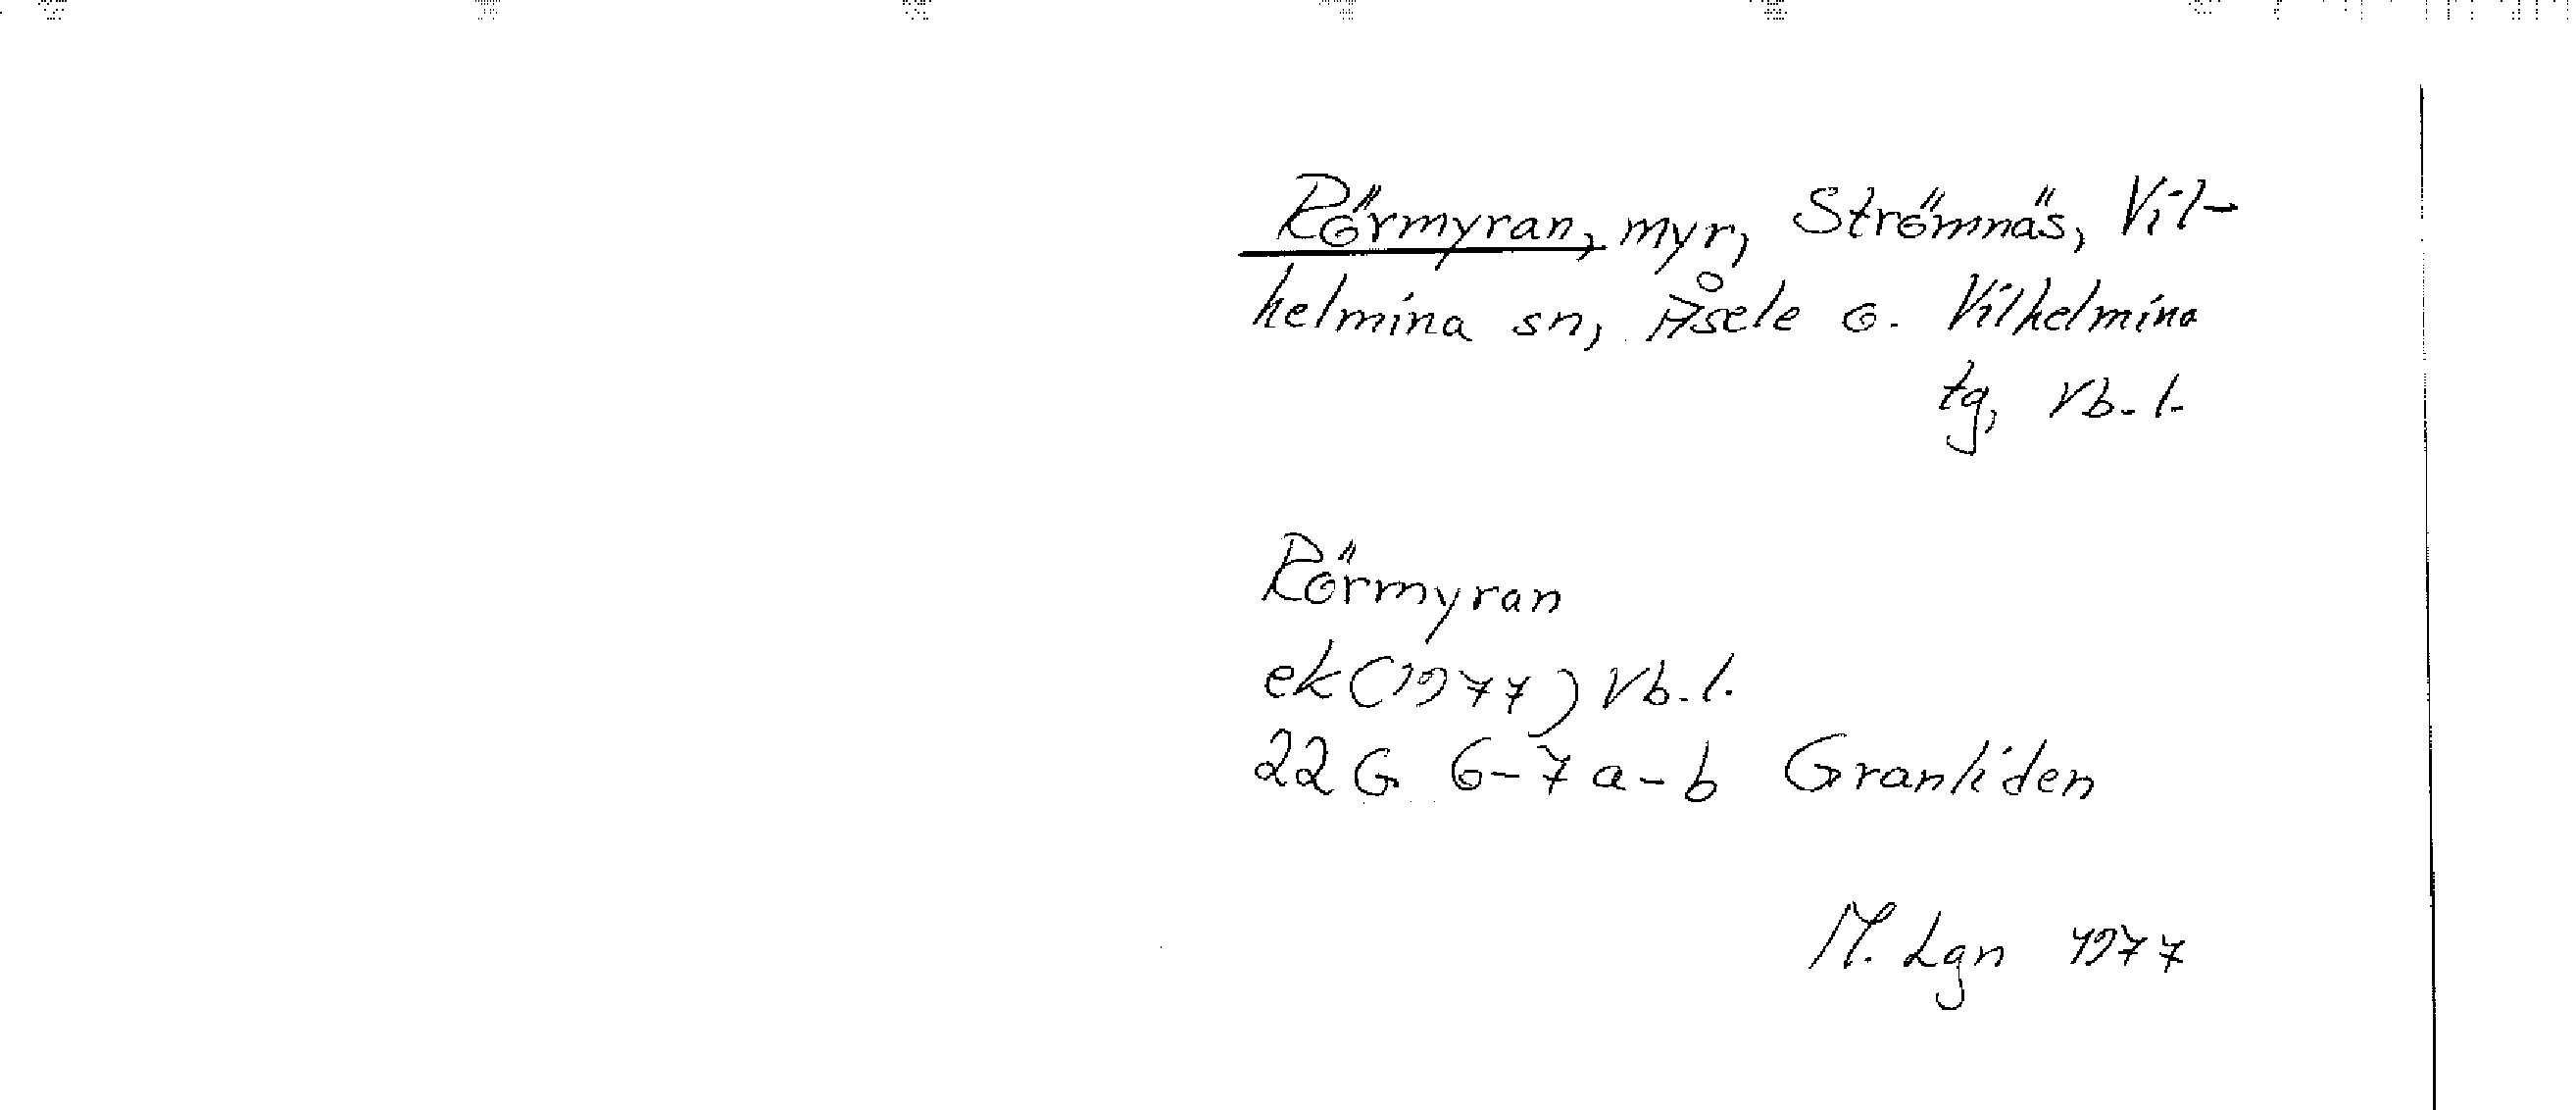 Rörmyran, myr, Strömnäs, Vil-
helmina sn, Åsele o. Vilhelmina
tg, Vb. l.
Rörmyran
ek (1977) Vb. l.
22 G 6-7 a-b Granliden
M. Lgn 1977